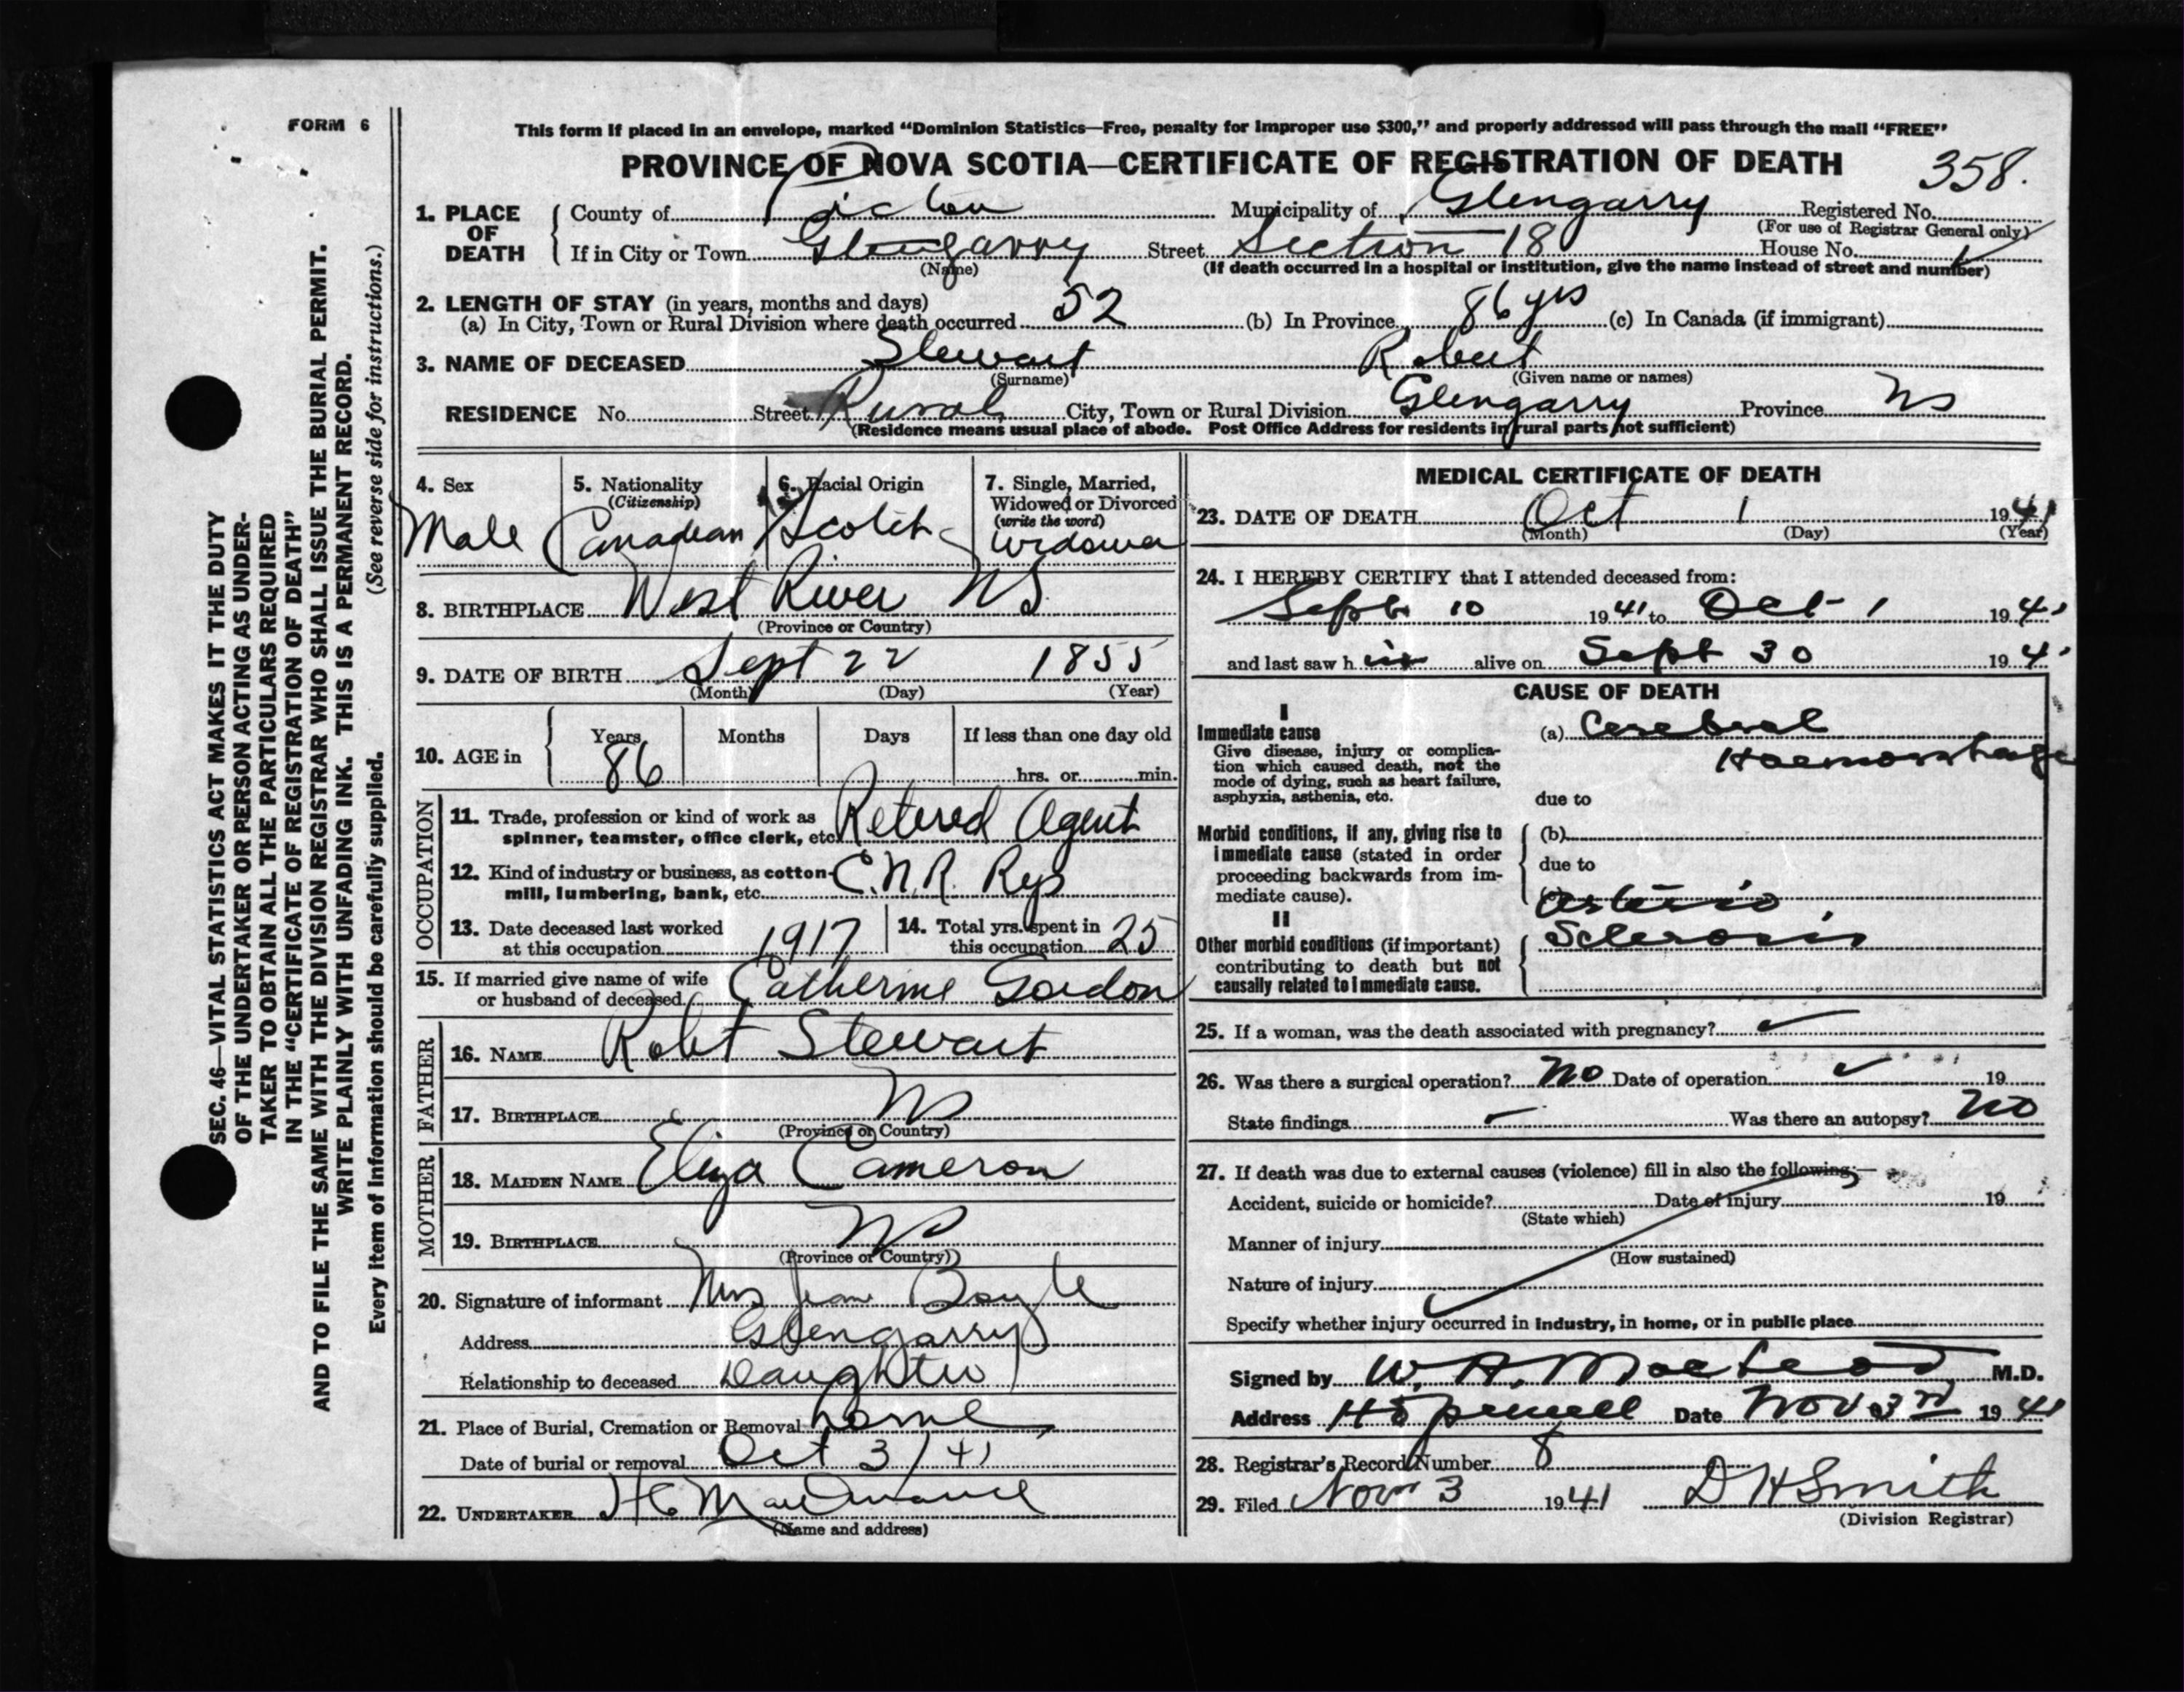 FORM 6
This form if placed in an envelope, marked “Dominion Statistics—Free, penalty for improper use $300,” and properly addressed will pass through the mail “FREE”
PROVINCE OF NOVA SCOTIA—CERTIFICATE OF REGISTRATION OF DEATH
358.
1. PLACE OF DEATH
County of Pictou Municipality of Glengarry Registered No.
(For use of Registrar General only)
If in City or Town Glengarry Street Section 18 House No.
(Name)
(If death occurred in a hospital or institution, give the name instead of street and number)
2. LENGTH OF STAY (in years, months and days)
(a) In City, Town or Rural Division where death occurred 52 (b) In Province 86 yrs (c) In Canada (if immigrant)
3. NAME OF DECEASED Stewart Robert
(Surname) (Given name or names)
RESIDENCE No. Street Rural City, Town or Rural Division Glengarry Province NS
(Residence means usual place of abode. Post Office Address for residents in rural parts not sufficient)
4. Sex
Male
5. Nationality
(Citizenship)
Canadian
6. Racial Origin
Scotch
7. Single, Married,
Widowed or Divorced
(write the word)
Widower
8. BIRTHPLACE West River NS
(Province or Country)
9. DATE OF BIRTH Sept 22 1855
(Month) (Day) (Year)
10. AGE in
Years Months Days If less than one day old
86 hrs. or min.
OCCUPATION
11. Trade, profession or kind of work as
spinner, teamster, office clerk, etc. Retired Agent
12. Kind of industry or business, as cotton-
mill, lumbering, bank, etc. C.N.R. Rys
13. Date deceased last worked
at this occupation 1917
14. Total yrs. spent in
this occupation 25
15. If married give name of wife
or husband of deceased Catherine Gordon
FATHER
16. NAME Robt Stewart
17. BIRTHPLACE NS
(Province or Country)
MOTHER
18. MAIDEN NAME Eliza Cameron
19. BIRTHPLACE NS
(Province or Country)
20. Signature of informant Mrs Jean Boyle
Address Glengarry
Relationship to deceased Daughter
21. Place of Burial, Cremation or Removal
Date of burial or removal Oct 3/41
22. UNDERTAKER
(Name and address)
MEDICAL CERTIFICATE OF DEATH
23. DATE OF DEATH Oct 1 1941
(Month) (Day) (Year)
24. I HEREBY CERTIFY that I attended deceased from:
Sept 10 1941 to Oct 1 1941
and last saw him alive on Sept 30 1941
CAUSE OF DEATH
I
Immediate cause
Give disease, injury or complica-
tion which caused death, not the
mode of dying, such as heart failure,
asphyxia, asthenia, etc.
(a) Cerebral
Haemorrhage
due to
Morbid conditions, if any, giving rise to
immediate cause (stated in order
proceeding backwards from im-
mediate cause).
(b)
due to
(c) Arterio
II
Other morbid conditions (if important)
contributing to death but not
causally related to immediate cause.
Sclerosis
25. If a woman, was the death associated with pregnancy?
26. Was there a surgical operation? No Date of operation 19
State findings Was there an autopsy? No
27. If death was due to external causes (violence) fill in also the following:—
Accident, suicide or homicide? Date of injury 19
(State which)
Manner of injury
(How sustained)
Nature of injury
Specify whether injury occurred in industry, in home, or in public place
Signed by W. A. MacLeod M.D.
Address Hopewell Date Nov 3rd 1941
28. Registrar's Record Number 8
29. Filed Nov 3 1941 D H Smith
(Division Registrar)
SEC. 46—VITAL STATISTICS ACT MAKES IT THE DUTY
OF THE UNDERTAKER OR PERSON ACTING AS UNDER-
TAKER TO OBTAIN ALL THE PARTICULARS REQUIRED
IN THE “CERTIFICATE OF REGISTRATION OF DEATH”
AND TO FILE THE SAME WITH THE DIVISION REGISTRAR WHO SHALL ISSUE THE BURIAL PERMIT.
WRITE PLAINLY WITH UNFADING INK. THIS IS A PERMANENT RECORD.
Every item of information should be carefully supplied. (See reverse side for instructions.)